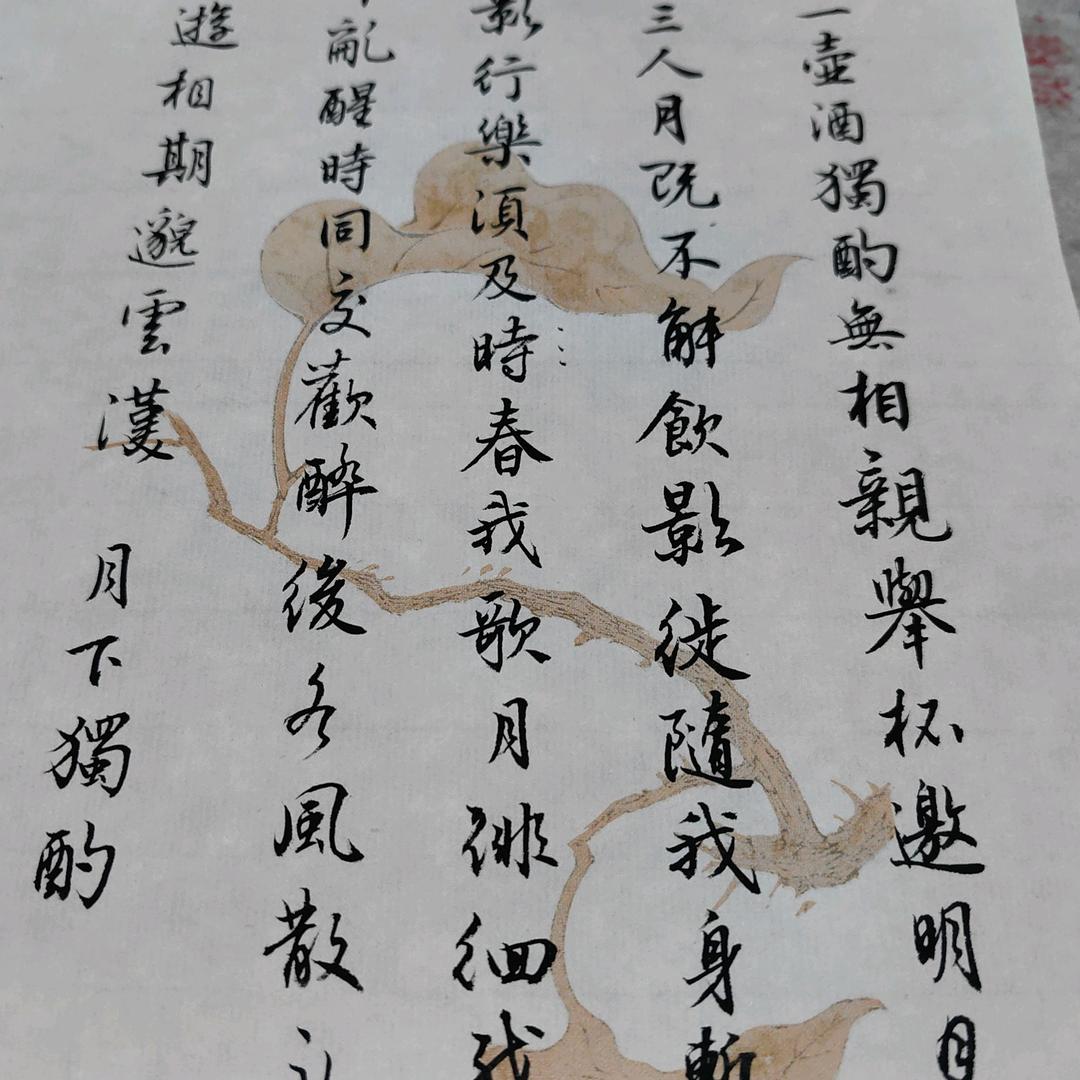 一壺酒獨酌無相親舉杯邀明月
三人月既不解飲影徒隨我身暫
影行樂須及時春我歌月徘徊我
亂醒時同交歡醉後各風散
遊相期邈雲漢 月下獨酌